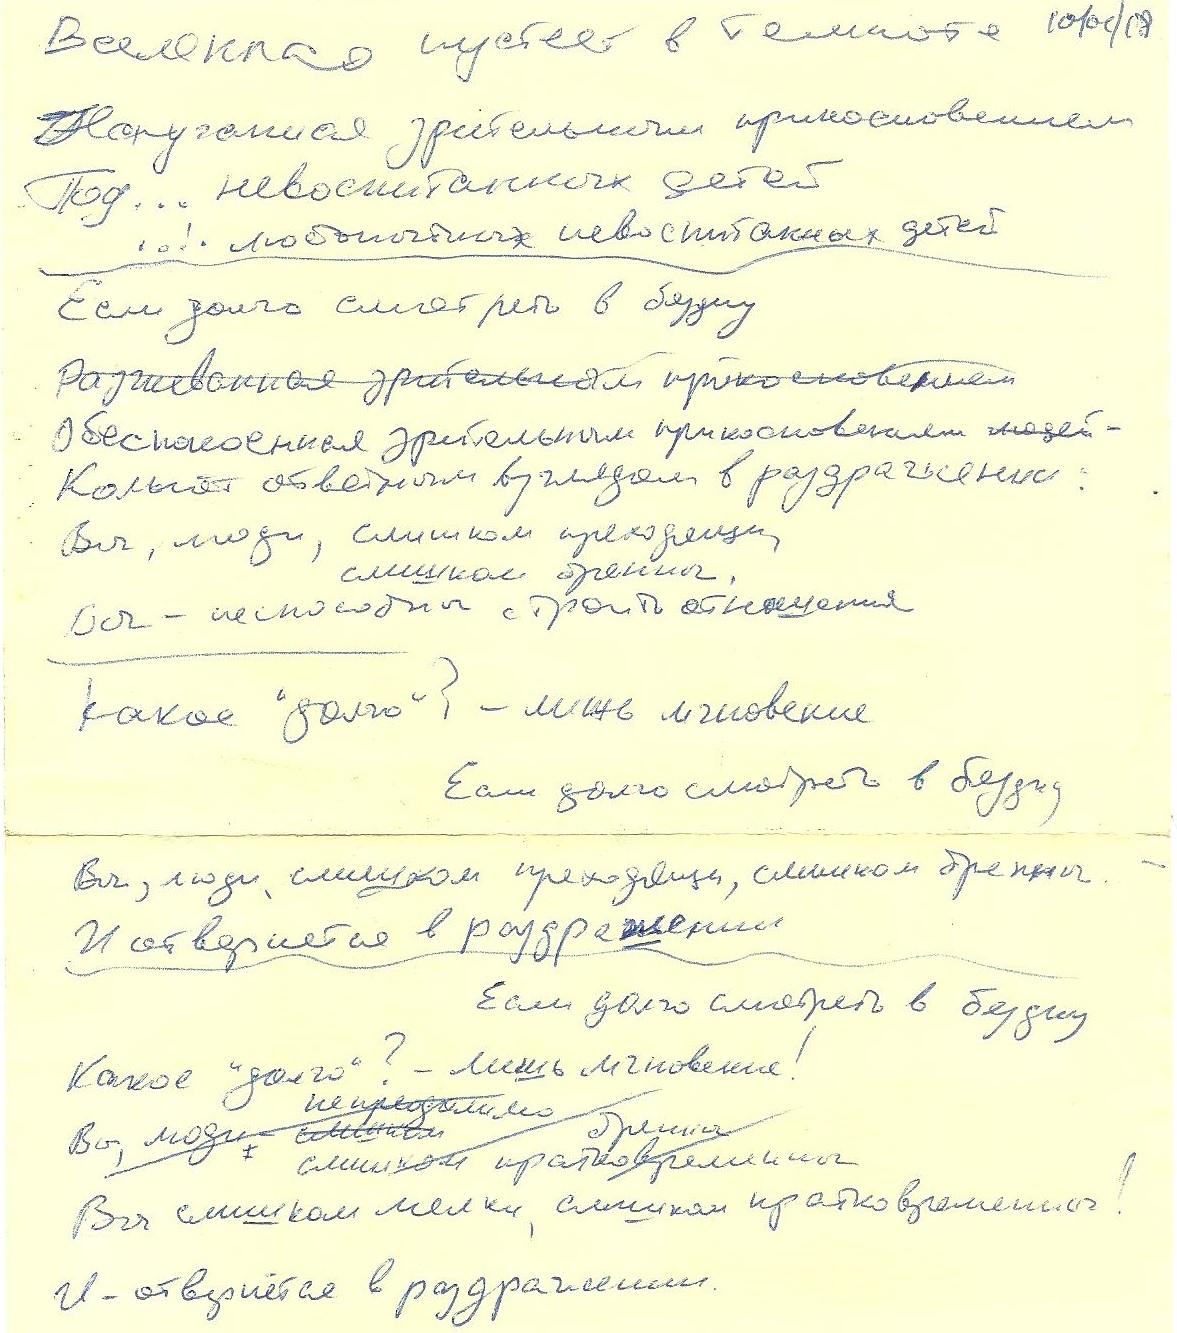 пустеет в темноте 10/01/18
Напуганная зрительным прикосновением
Под... невоспитанных детей
... любопытных невоспитанных детей
Если долго смотреть в бездну
зрительным прикосновением
Обеспокоенная зрительным прикосновением людей -
Кольнёт ответным взглядом в раздражении:
Вы, люди, слишком преходящи,
слишком бренны,
Вы - неспособны строить отношения
Какое "долго"? - лишь мгновение
Если долго смотреть в бездну
Вы, люди, слишком преходящи, слишком бренны. -
И отвернётся в раздражении
Если долго смотреть в бездну
Какое "долго"? - лишь мгновение!
непреодолимо
Вы, люди - слишком бренны
слишком кратковременны
Вы слишком мелки, слишком кратковременны!
И - отвернётся в раздражении.